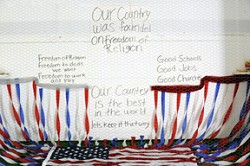 Our Country
was founded
on Freedom of
Religion
Freedom of Religion
Freedom to do as
we want
Freedom to work
and play
Good Schools
Good Jobs
Good Churches
Our Country
is the best
in the world
lets keep it that way